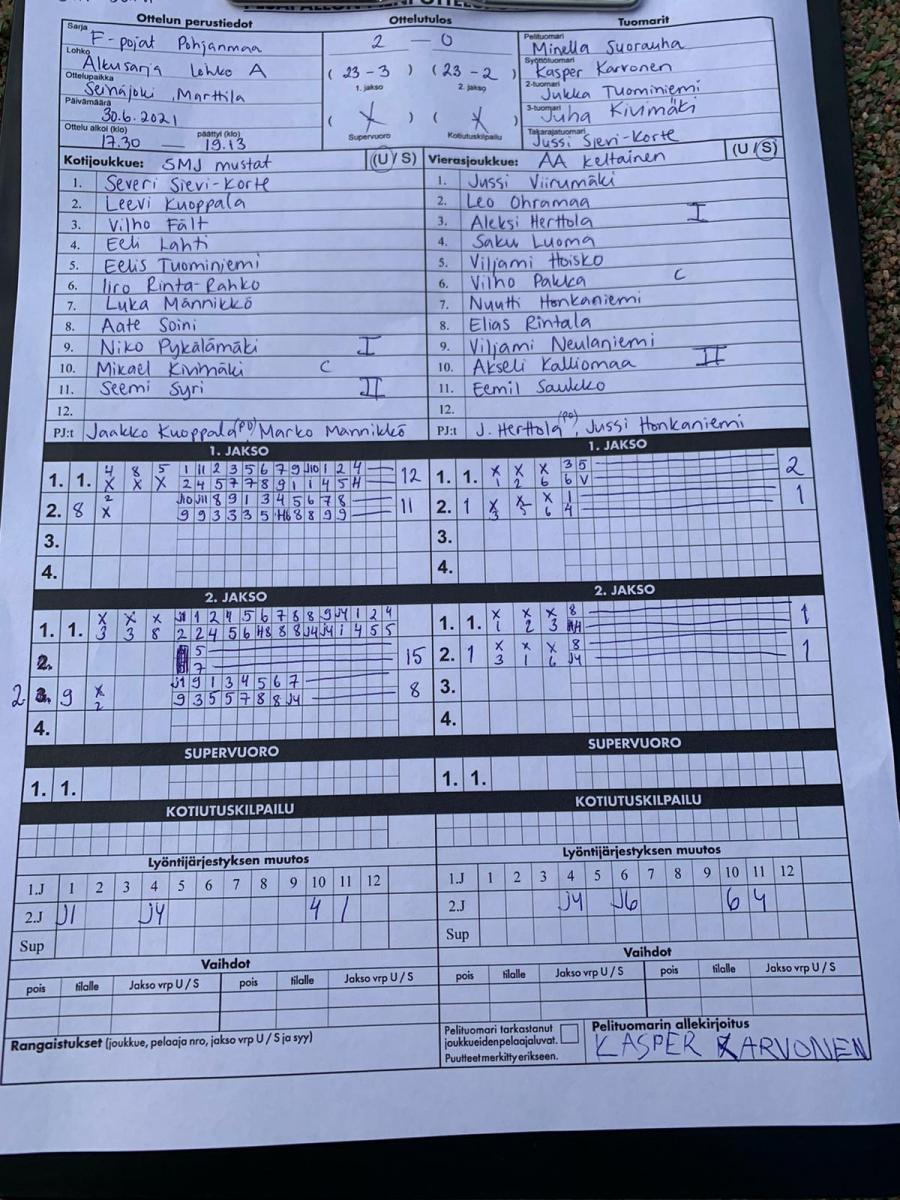 Ottelun perustiedot Ottelutulos Tuomarit
Sarja F-pojat Pohjanmaa
Lohko Alkusarja Lohko A
Ottelupaikka Seinäjoki, Marttila
Päivämäärä 30.6.2021
Ottelu alkoi (klo) päättyi (klo)
17.30 — 19.13
2 — 0
( 23-3 ) ( 23-2 )
1. jakso 2. jakso
( X ) ( X )
Supervuoro Kotiutuskilpailu
Pelituomari Minella Suorauha
Syöttötuomari Kasper Karvonen
2-tuomari Jukka Tuominiemi
3-tuomari Juha Kivimäki
Takarajatuomari Jussi Sievi-Korte
Kotijoukkue: SMJ mustat (U/S)
1. Severi Sievi-Korte
2. Leevi Kuoppala
3. Vilho Fält
4. Eeli Lahti
5. Eelis Tuominiemi
6. Iiro Rinta-Rahko
7. Luka Männikkö
8. Aate Soini
9. Niko Pykälämäki I
10. Mikael Kivimäki C
11. Seemi Syri II
12.
PJ:t Jaakko Kuoppala (PO) Marko Männikkö
Vierasjoukkue: AA Keltainen (U/S)
1. Jussi Viirumäki
2. Leo Ohramaa
3. Aleksi Herttola I
4. Saku Luoma
5. Viljami Hoisko
6. Vilho Pakka C
7. Nuutti Honkaniemi
8. Elias Rintala
9. Viljami Neulaniemi
10. Akseli Kalliomaa II
11. Eemil Saukko
12.
PJ:t J. Herttola (PO), Jussi Honkaniemi
1. JAKSO
4 8 5 1 11 2 3 5 6 7 9 J10 1 2 4
1. 1. X X X 2 4 5 7 7 8 9 1 1 4 5 H 12
2 J10 J11 8 9 1 3 4 5 6 7 8
2. 8 X 9 9 3 3 3 5 H6 8 8 9 9 11
3.
4.
1. JAKSO
X X X 3 5
1. 1. 1 2 6 6 V 2
X X X 1
2. 1 3 5 6 4 1
3.
4.
2. JAKSO
X X X J1 1 2 4 5 6 7 8 8 9 J4 1 2 4
1. 1. 3 3 8 2 2 4 5 6 H8 8 8 J4 J4 1 4 5 5
2. 5 15
7
X J1 9 1 3 4 5 6 7
2 3. 9 2 9 3 5 5 7 8 8 J4 8
4.
2. JAKSO
X X X 8
1. 1. 1 2 3 1
X X X 8
2. 1 3 1 6 J4 1
3.
4.
SUPERVUORO
1. 1.
SUPERVUORO
1. 1.
KOTIUTUSKILPAILU
KOTIUTUSKILPAILU
Lyöntijärjestyksen muutos
1.J 1 2 3 4 5 6 7 8 9 10 11 12
2.J J1 J4 4 1
Sup
Lyöntijärjestyksen muutos
1.J 1 2 3 4 5 6 7 8 9 10 11 12
2.J J4 J6 6 4
Sup
Vaihdot
pois tilalle Jakso vrp U / S pois tilalle Jakso vrp U / S
Vaihdot
pois tilalle Jakso vrp U / S pois tilalle Jakso vrp U / S
Rangaistukset (joukkue, pelaaja nro, jakso vrp U / S ja syy)
Pelituomari tarkastanut
joukkueiden pelaajaluvat.
Puutteet merkitty erikseen.
Pelituomarin allekirjoitus
KASPER KARVONEN